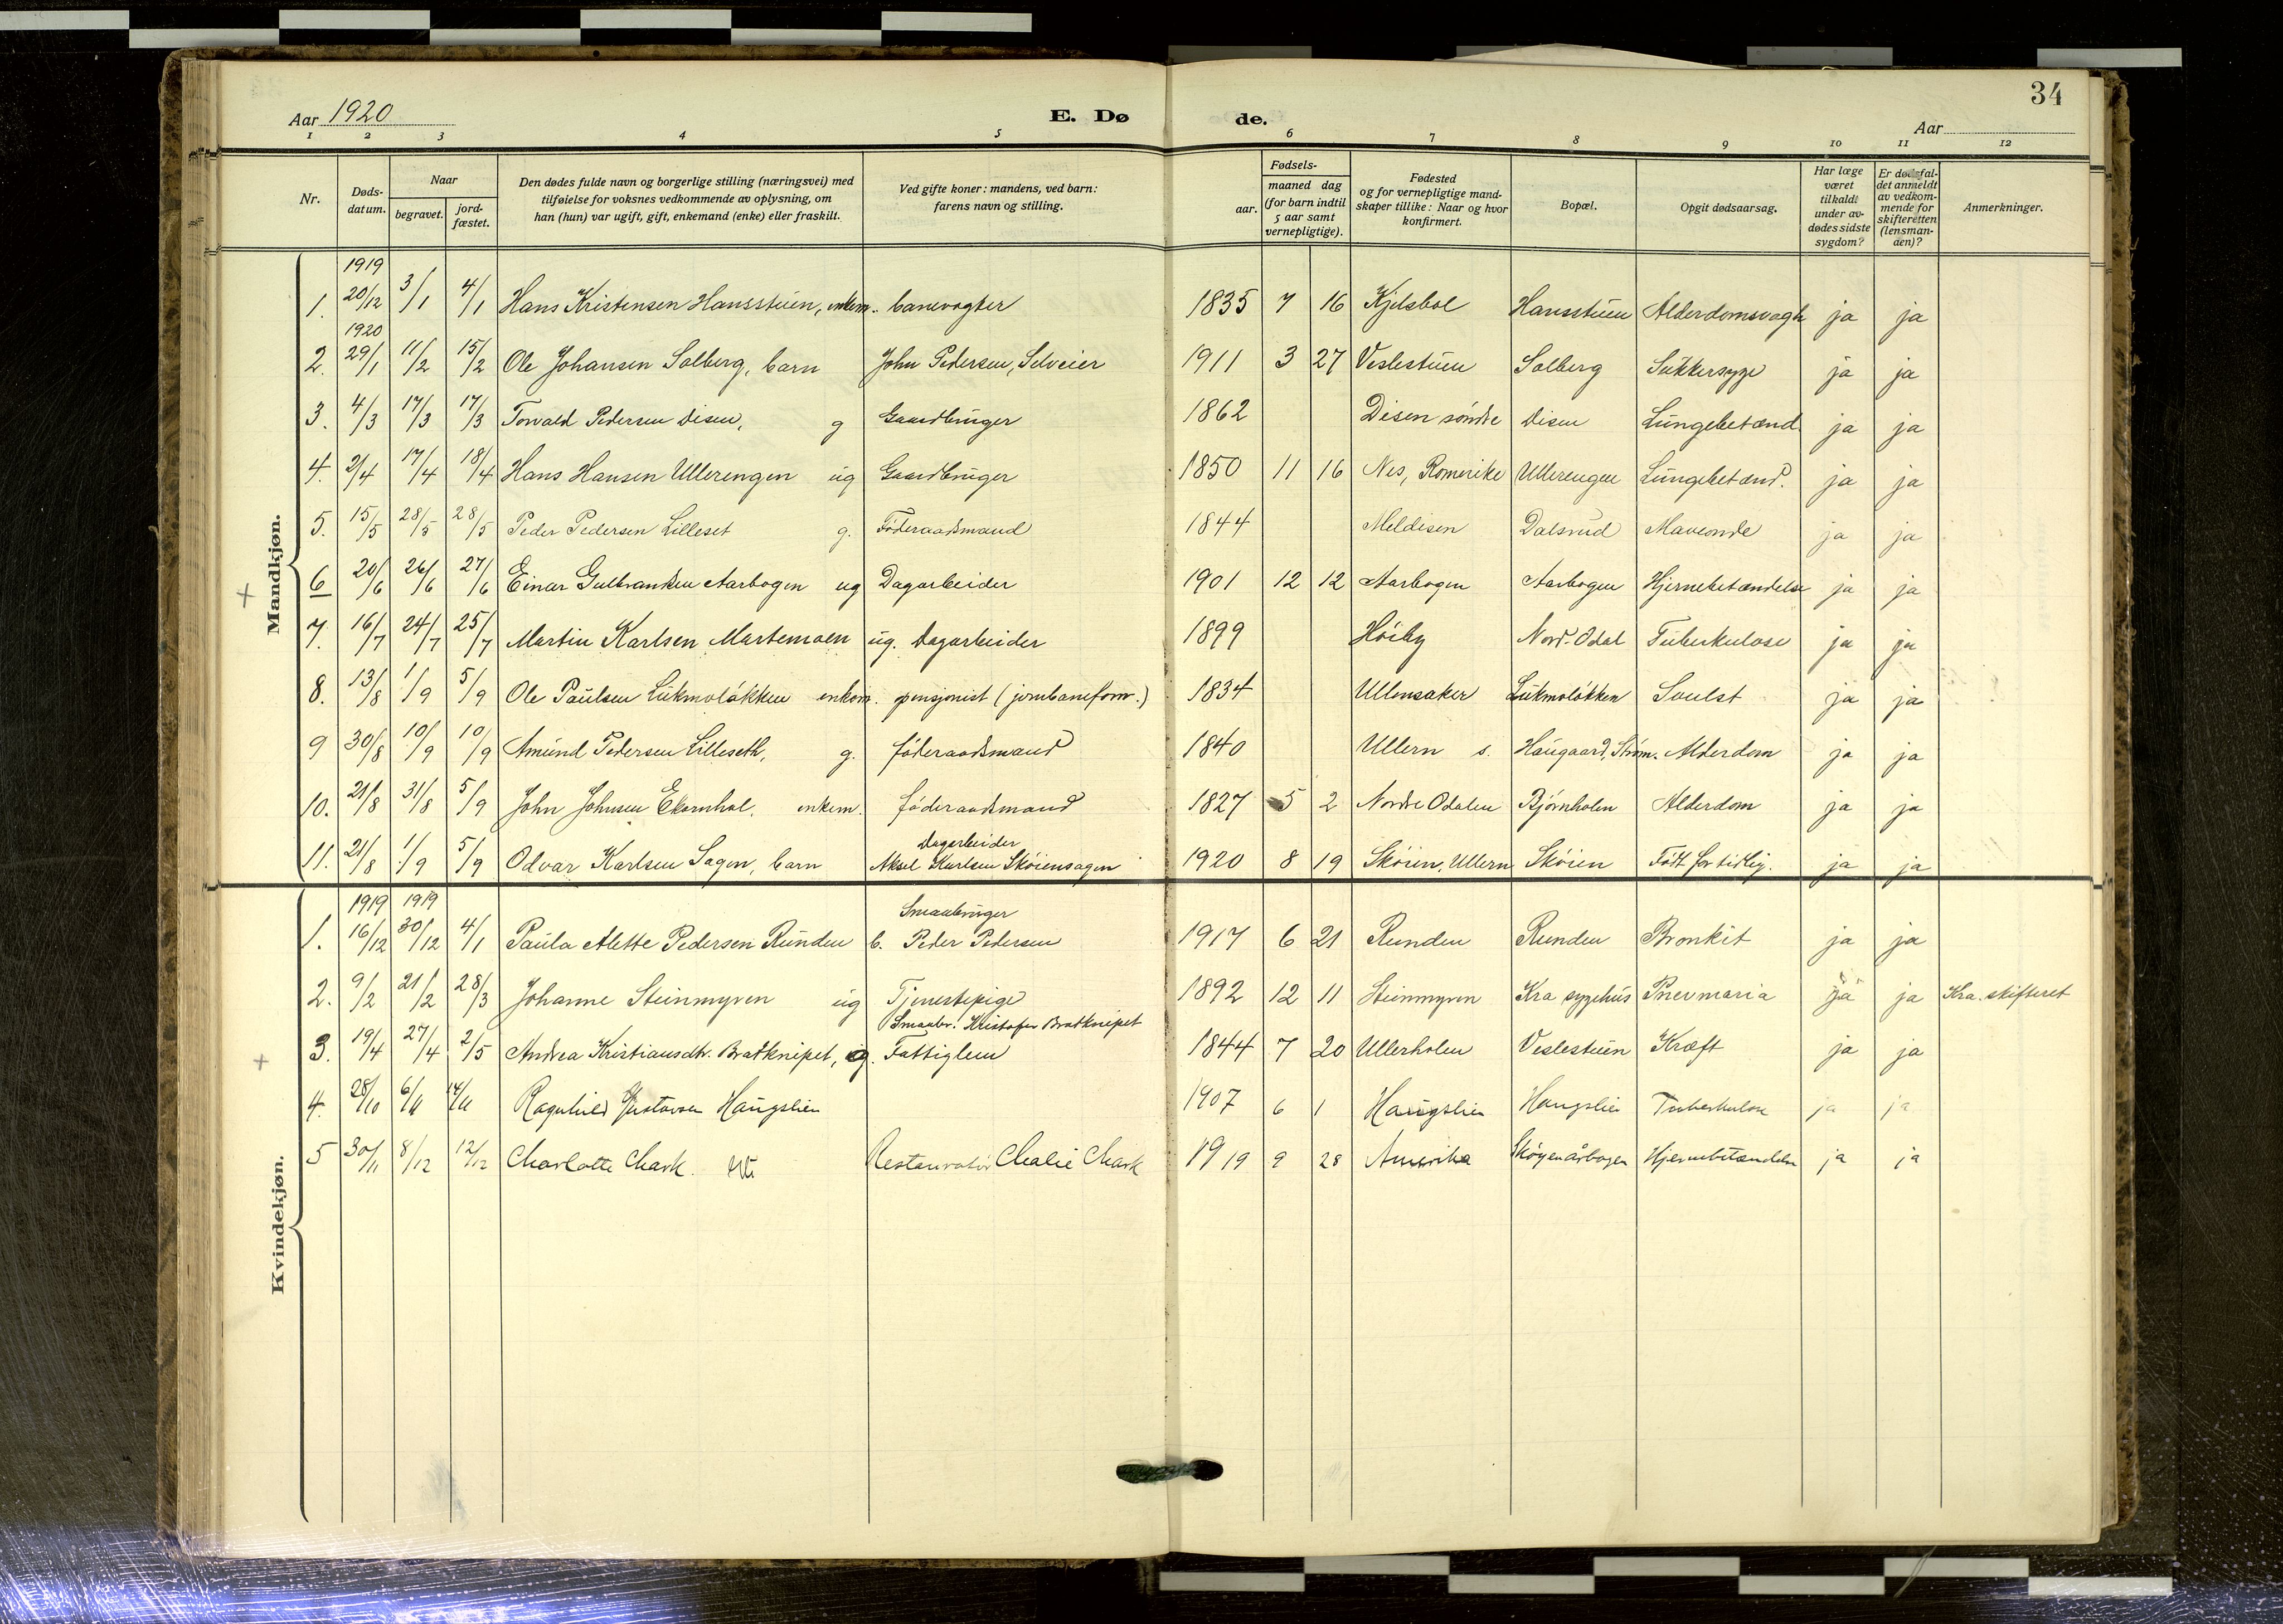 34
Aar 1920 E. Døde. Aar
1 2 3 4 5 6 7 8 9 10 11 12
Nr. Døds-datum. Naar begravet. jord-fæstet. Den dødes fulde navn og borgerlige stilling (næringsvei) med tilføielse for voksnes vedkommende av oplysning, om han (hun) var ugift, gift, enkemand (enke) eller fraskilt. Ved gifte koner: mandens, ved barn: farens navn og stilling. Fødsels- aar. maaned dag (for barn indtil 5 aar samt vernepligtige). Fødested og for vernepligtige mand-skaper tillike: Naar og hvor konfirmert. Bopæl. Opgit dødsaarsag. Har læge været tilkaldt under av-dødes sidste sygdom? Er dødsfal-det anmeldt av vedkom-mende for skifteretten (lensman-den)? Anmerkninger.
Mandkjøn.
1919
1. 20/12 3/1 4/1 Hans Kristensen Hansstuen, enkem. banevogter 1835 7 16 Kjelsbol Hansstuen Alderdomsvagh ja ja
1920
2. 29/1 11/2 15/2 Ole Johansen Solberg, barn John Pedersen, Selveier 1911 3 27 Veslestuen Solberg Sukkersyge ja ja
3. 4/3 17/3 17/3 Torvald Pedersen Disen, g Gaardbruger 1862 Disen søndre Disen Lungebetænd. ja ja
4. 2/4 17/4 18/4 Hans Hansen Ullerengen ug Gaardbruger 1850 11 16 Nes, Romerike Ullerengen Lungebetænd. ja ja
5. 15/5 28/5 28/5 Peder Pedersen Lilleset g. Føderaadsmand 1844 Meldisen Dalsrud Maveonde ja ja
+ 6 20/6 26/6 27/6 Einar Gulbrandsen Aarbogen ug Dagarbeider 1901 12 12 Aarbogen Aarbogen Hjernebetændelse ja ja
7. 16/7 24/7 25/7 Martin Karlsen Martemoen ug. Dagarbeider 1899 Høiby Nord-Odal Tuberkulose ja ja
8. 13/8 1/9 5/9 Ole Paulsen Lukmoløkken enkem. pensjonist (jernbaneform.) 1834 Ullensaker Lukmoløkken Svulst ja ja
9 30/8 10/9 10/9 Amund Pedersen Lilleseth, g. føderaadsmand 1840 Ullern s. Haugaard, Strøm. Alderdom ja ja
10. 21/8 31/8 5/9 John Johnsen Ekornhol. enkem. føderaadsmand 1827 5 2 Nordre Odalen Bjørnholen Alderdom ja ja
Dagarbeider
11. 21/8 1/9 5/9 Odvar Karlsen Sagen, barn Aksel Karlsen Skøiensagen 1920 8 19 Skøien, Ullern Skøien Født for tidlig. ja ja
Kvindekjøn.
1919 1919 Smaabruger
1. 16/12 30/12 4/1 Paula Alette Pedersen Runden b. Peder Pedersen 1917 6 21 Runden Runden Bronkit ja ja
2. 9/2 21/2 28/3 Johanne Steinmyren ug Tjenestepige 1892 12 11 Steinmyren Kra sygehus Pnevmaria ja ja Kra. skifteret
Smaabr. Kristofer Bratknipet
+ 3. 19/4 27/4 2/5 Andrea Kristiansdtr. Bratknipet, g. Fattiglem 1844 7 20 Ullerholen Veslestuen Kræft ja ja
4. 28/10 6/11 14/11 Ragnhild Gustavsen Haugslien 1907 6 1 Haugslien Haugslien Tuberkulose ja ja
5 30/11 8/12 12/12 Charlotte Chark. Restauratør Chalie Chark 1919 9 28 Amerika Skøyenårbogen Hjernebetændelse ja ja